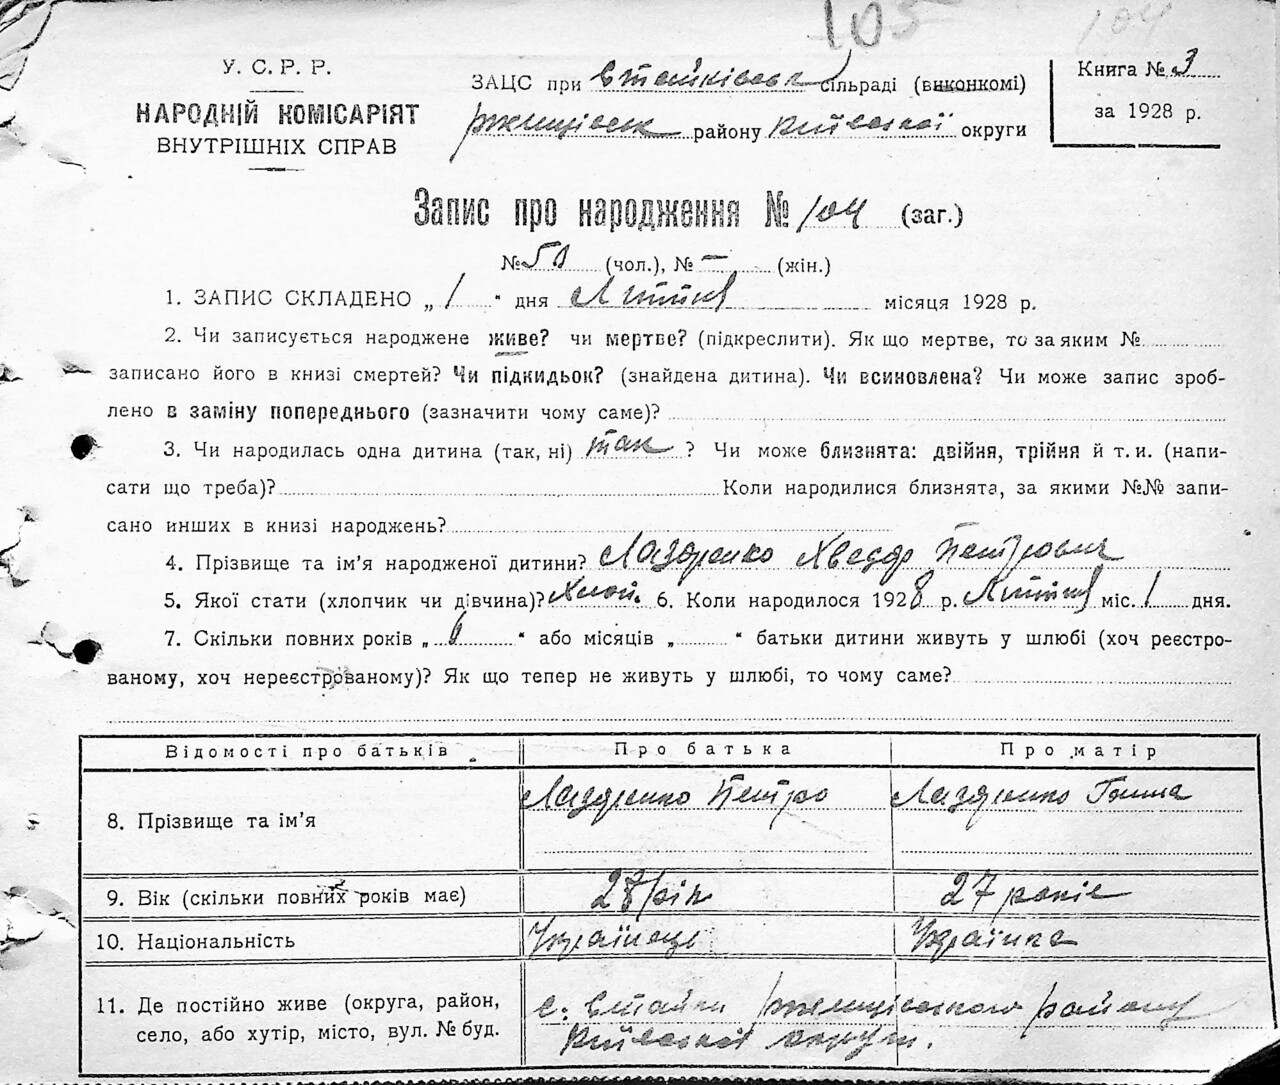 105
104
У. С. Р. Р.
НАРОДНІЙ КОМІСАРІЯТ
ВНУТРІШНІХ СПРАВ
ЗАЦС при Стайківськ сільраді (виконкомі)
ржищівськ району Київської округи
Книга № 3
за 1928 р.
Запис про народження № 104 (заг.)
№ (чол.), № – (жін.)
1. ЗАПИС СКЛАДЕНО „ 1 “ дня місяця 1928 р.
2. Чи записується народжене живе? чи мертве? (підкреслити). Як що мертве, то за яким №
записано його в книзі смертей? Чи підкидьок? (знайдена дитина). Чи всиновлена? Чи може запис зроб-
лено в заміну попереднього (зазначити чому саме)?
3. Чи народилась одна дитина (так, ні) так ? Чи може близнята: двійня, трійня й т. и. (напи-
сати що треба)? Коли народилися близнята, за якими №№ запи-
сано инших в книзі народжень?
4. Прізвище та ім’я народженої дитини? Лаздренко Хведір Петрович
5. Якої стати (хлопчик чи дівчина)? Хлоп. 6. Коли народилося 1928 р. міс. 1 дня.
7. Скільки повних років „ “ або місяців „ “ батьки дитини живуть у шлюбі (хоч реєстро-
ваному, хоч нереєстрованому)? Як що тепер не живуть у шлюбі, то чому саме?
Відомості про батьків Про батька Про матір
8. Прізвище та ім’я Лаздренко Петро Лаздренко Ганна
9. Вік (скільки повних років має) 28 рік 27 років
10. Національність Українець Українка
11. Де постійно живе (округа, район, с. Стайки ржищівського району
село, або хутір, місто, вул. № буд. Київської округи.